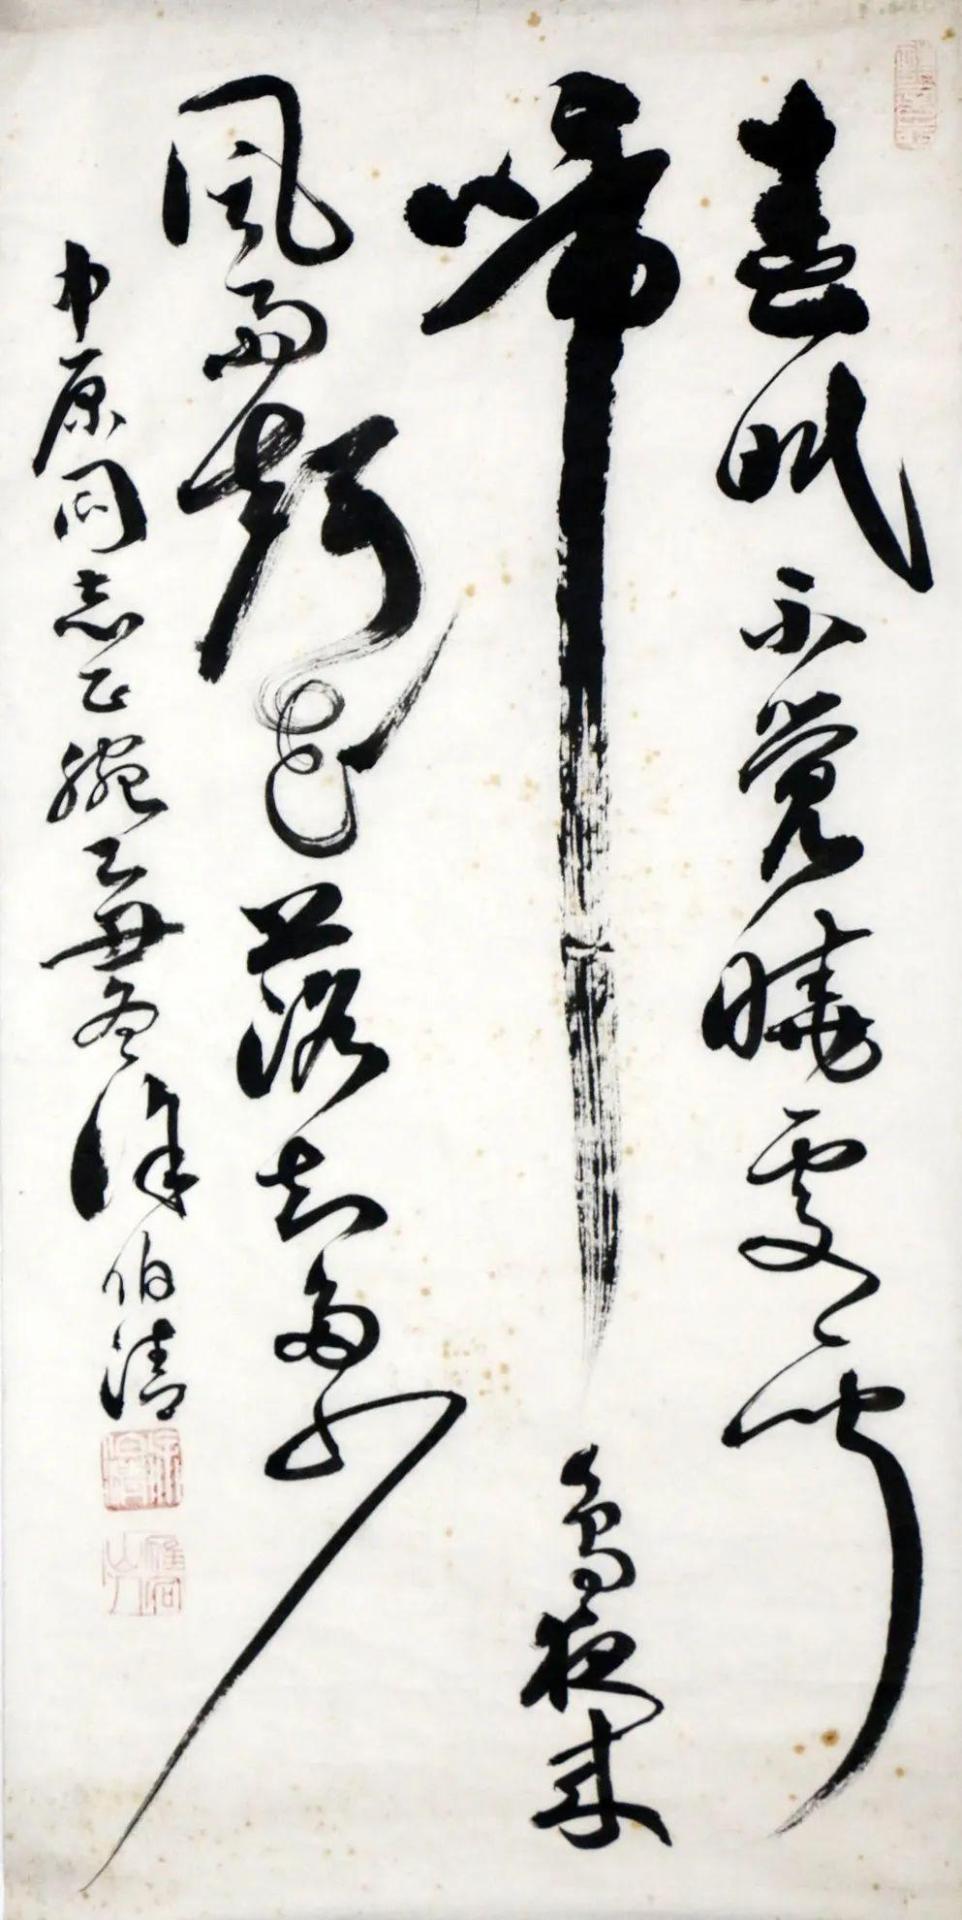 春眠不覺曉處處聞
啼鳥夜来
風雨聲花落知多少
中原同志正腕乙丑冬徐伯清